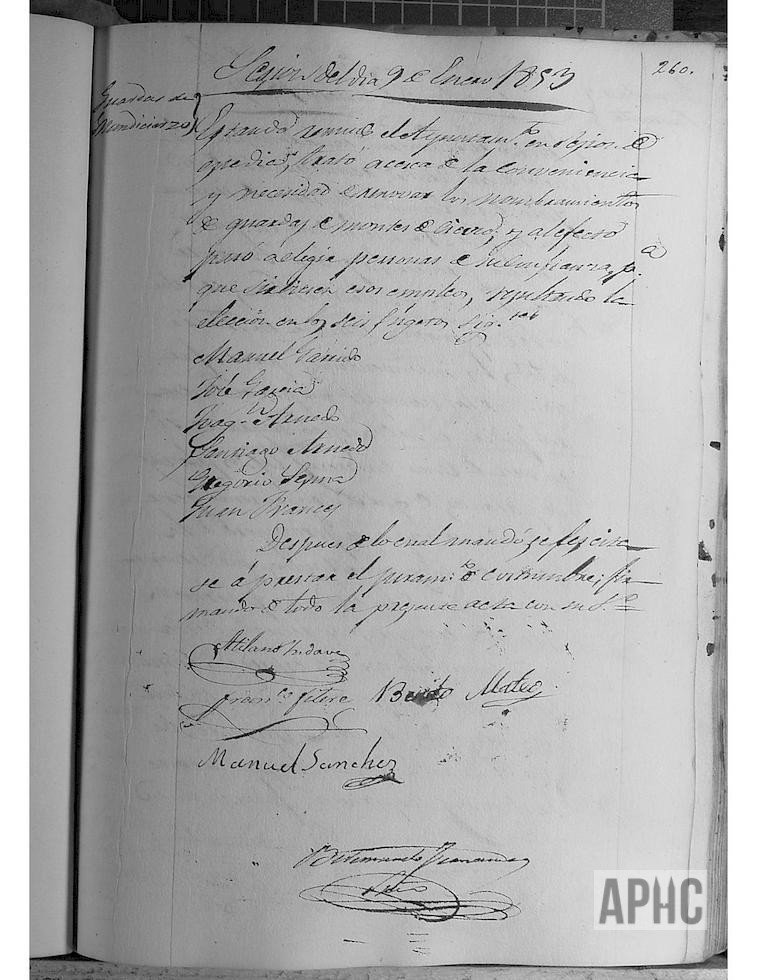 260.
Sesion del dia 9 de Enero 1853
Guardas de
Estando reunido el Ayuntam.to en sesion de
este dia, trató acerca de la conveniencia
y necesidad de renovar los nombramientos
de guardas de montes de y al efecto
pasó a elegir personas de su confianza, p.a
que sirviesen esos empleos, resultando la
elección en los seis sugetos sig.tes
Manuel Garrido
José Garcia
Joaq.n Arnedo
Santiago Arnedo
Gregorio
Juan Frances
Despues de lo cual mandó se les cite
se á prestar el juram.to de costumbre; fir
mando de todo la presente acta con su S.ª
Atilano Indave
Fran.co Fitere Benito Mateo
Manuel Sanchez
Srio
APHC